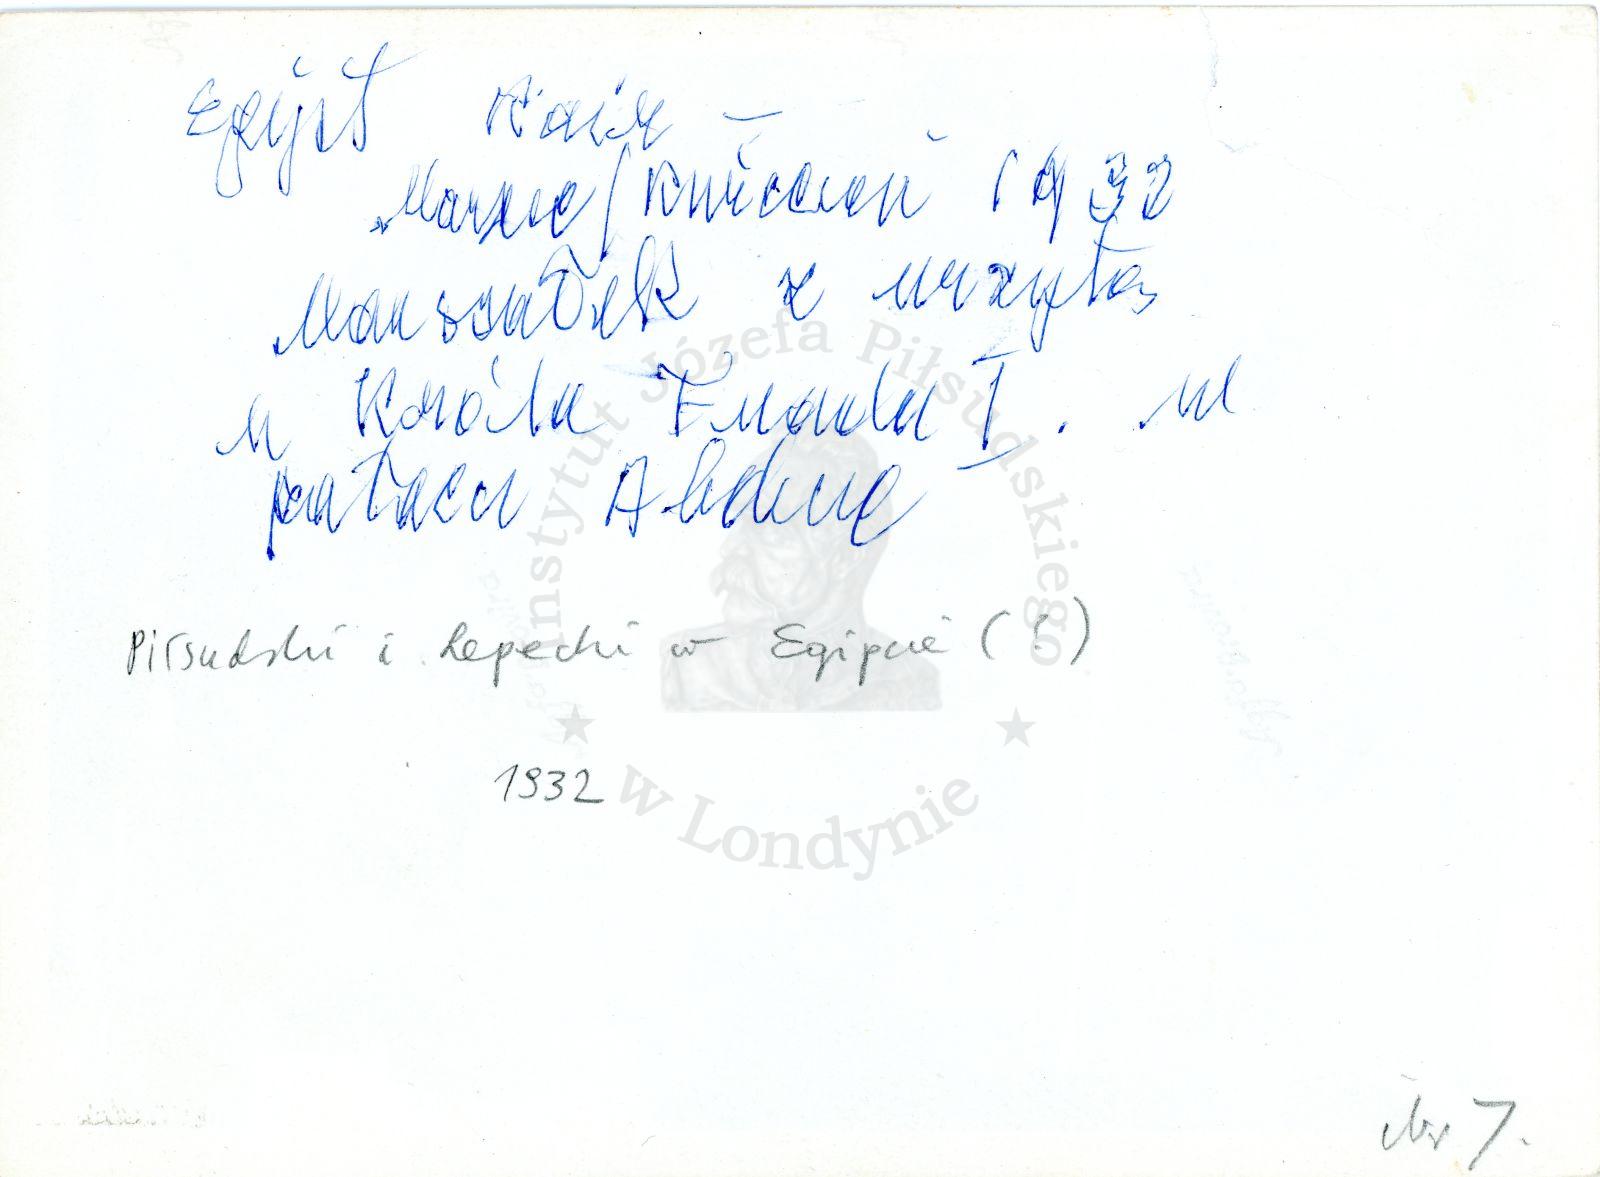 Egipt Kair —
Marzec/Kwiecień 1932
Marszałek z wizytą
u Króla Fuada I. w
pałacu Abdinę
Piłsudski i Lepecki w Egipcie (?)
1932
Nr 7.
Instytut Józefa Piłsudskiego
w Londynie